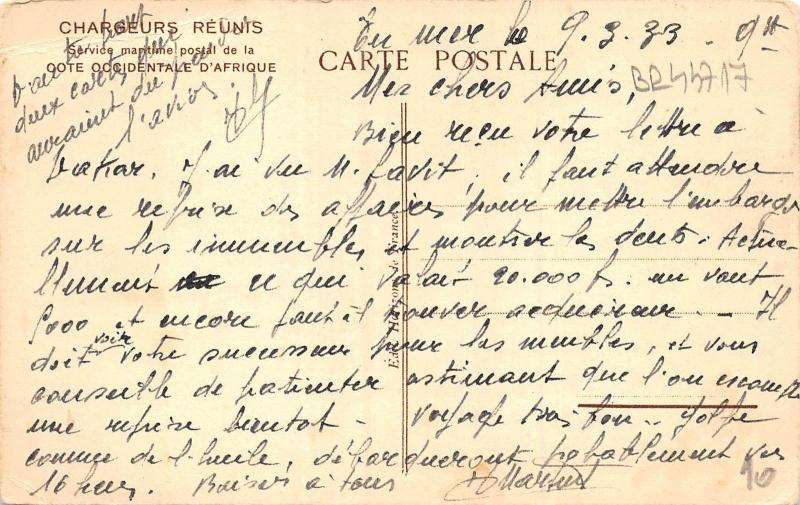 CHARGEURS RÉUNIS
Service maritime postal de la
COTE OCCIDENTALE D'AFRIQUE
CARTE POSTALE
deux cartes qui
auraient du
l'avion
En mer le 9.3.33. 9H
Mes chers Amis,
BR44717
Bien reçu votre lettre à
Dakar. J'ai vu M. Gavit, il faut attendre
une reprise des affaires pour mettre l'embargo
sur les immeubles et montrer les dents. Actue-
llement ce qui valait 20.000 f. en vaut
5000 et encore faut-il trouver acquéreur. - Il
doit voir votre successeur pour les meubles, et vous
conseille de patienter estimant que l'on escompte
une reprise bientôt - Voyage très bon - golfe
comme de l'huile, débarquerons probablement vers
16 heures. Baisers à tous
Edit. Horizons de France
10